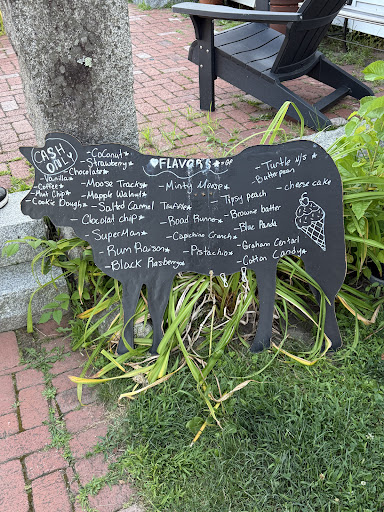 CASH
ONLY
♥FLAVORS★
-Vanilla
-Coffee
-Mint Chip
-Cookie Dough
-Coconut
-Strawberry
-Chocolate
-Moose Tracks
-Mapple Walnut
-Salted Carmel Truffle
-Choclat chip
-SuperMan
-Rum Raison
-Black Rasberry
-Minty Moose
-Road Runner
-Capechino Crunch
-Pistachio
-Turtle w/s
-Butter pecan
-cheese cake
-Tipsy peach
-Brownie batter
-Blue Panda
-Graham Centail
-Cotton Candy